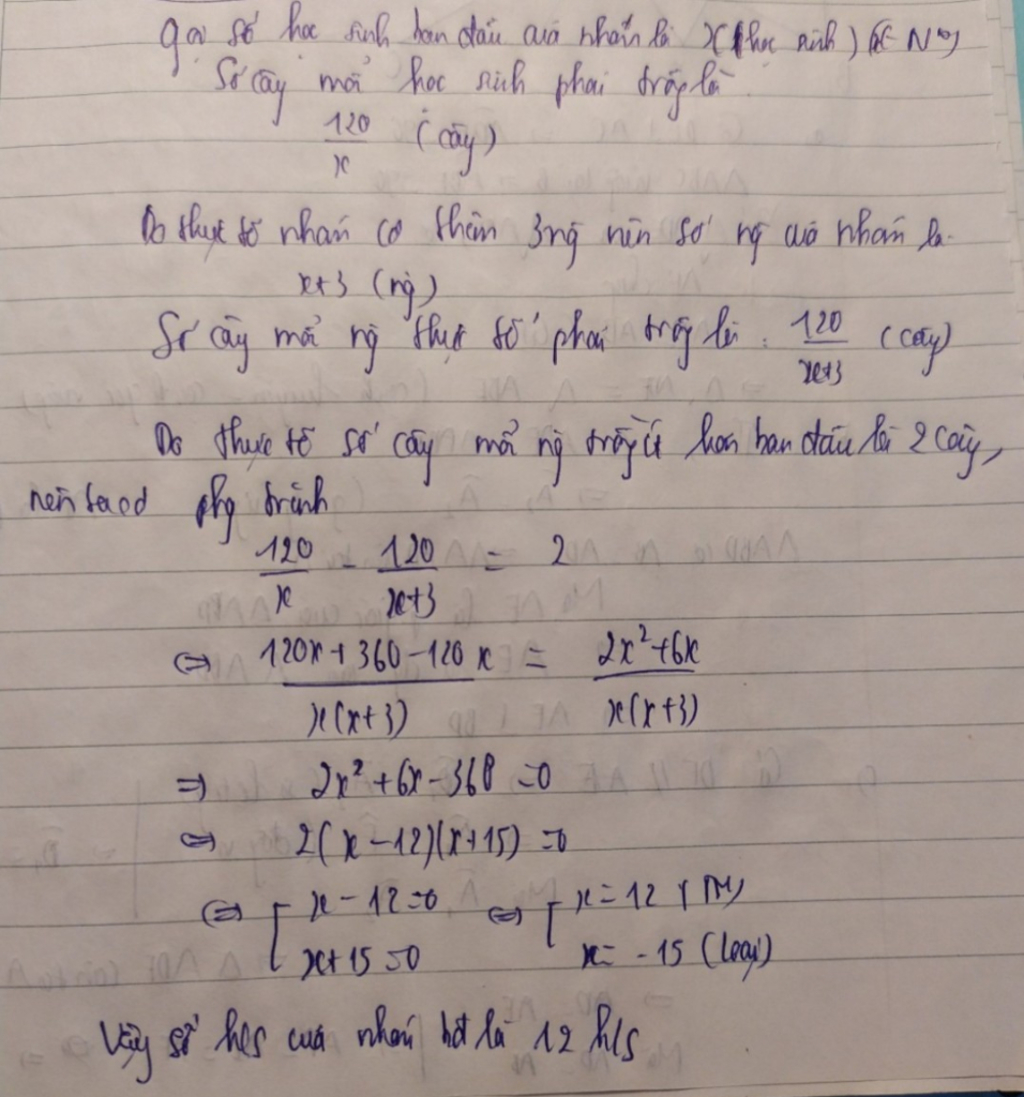 Gọi số học sinh ban đầu của nhóm là x (học sinh) (x ∈ N*)
Số cây mỗi học sinh phải trồng là
120/x (cây)
Do thực tế nhóm có thêm 3 ng nên số ng của nhóm là
x+3 (ng)
Số cây mỗi ng thực tế phải trồng là : 120/(x+3) (cây)
Do thực tế số cây mỗi ng trồng ít hơn ban đầu là 2 cây,
nên ta có phg trình
120/x - 120/(x+3) = 2
⇔ (120x + 360 - 120x)/(x(x+3)) = (2x² + 6x)/(x(x+3))
⇒ 2x² + 6x - 360 = 0
⇔ 2(x - 12)(x + 15) = 0
⇔ [ x - 12 = 0 ⇔ [ x = 12 (TM)
x + 15 = 0 x = - 15 (loại)
Vậy số h/s của nhóm bđ là 12 h/s